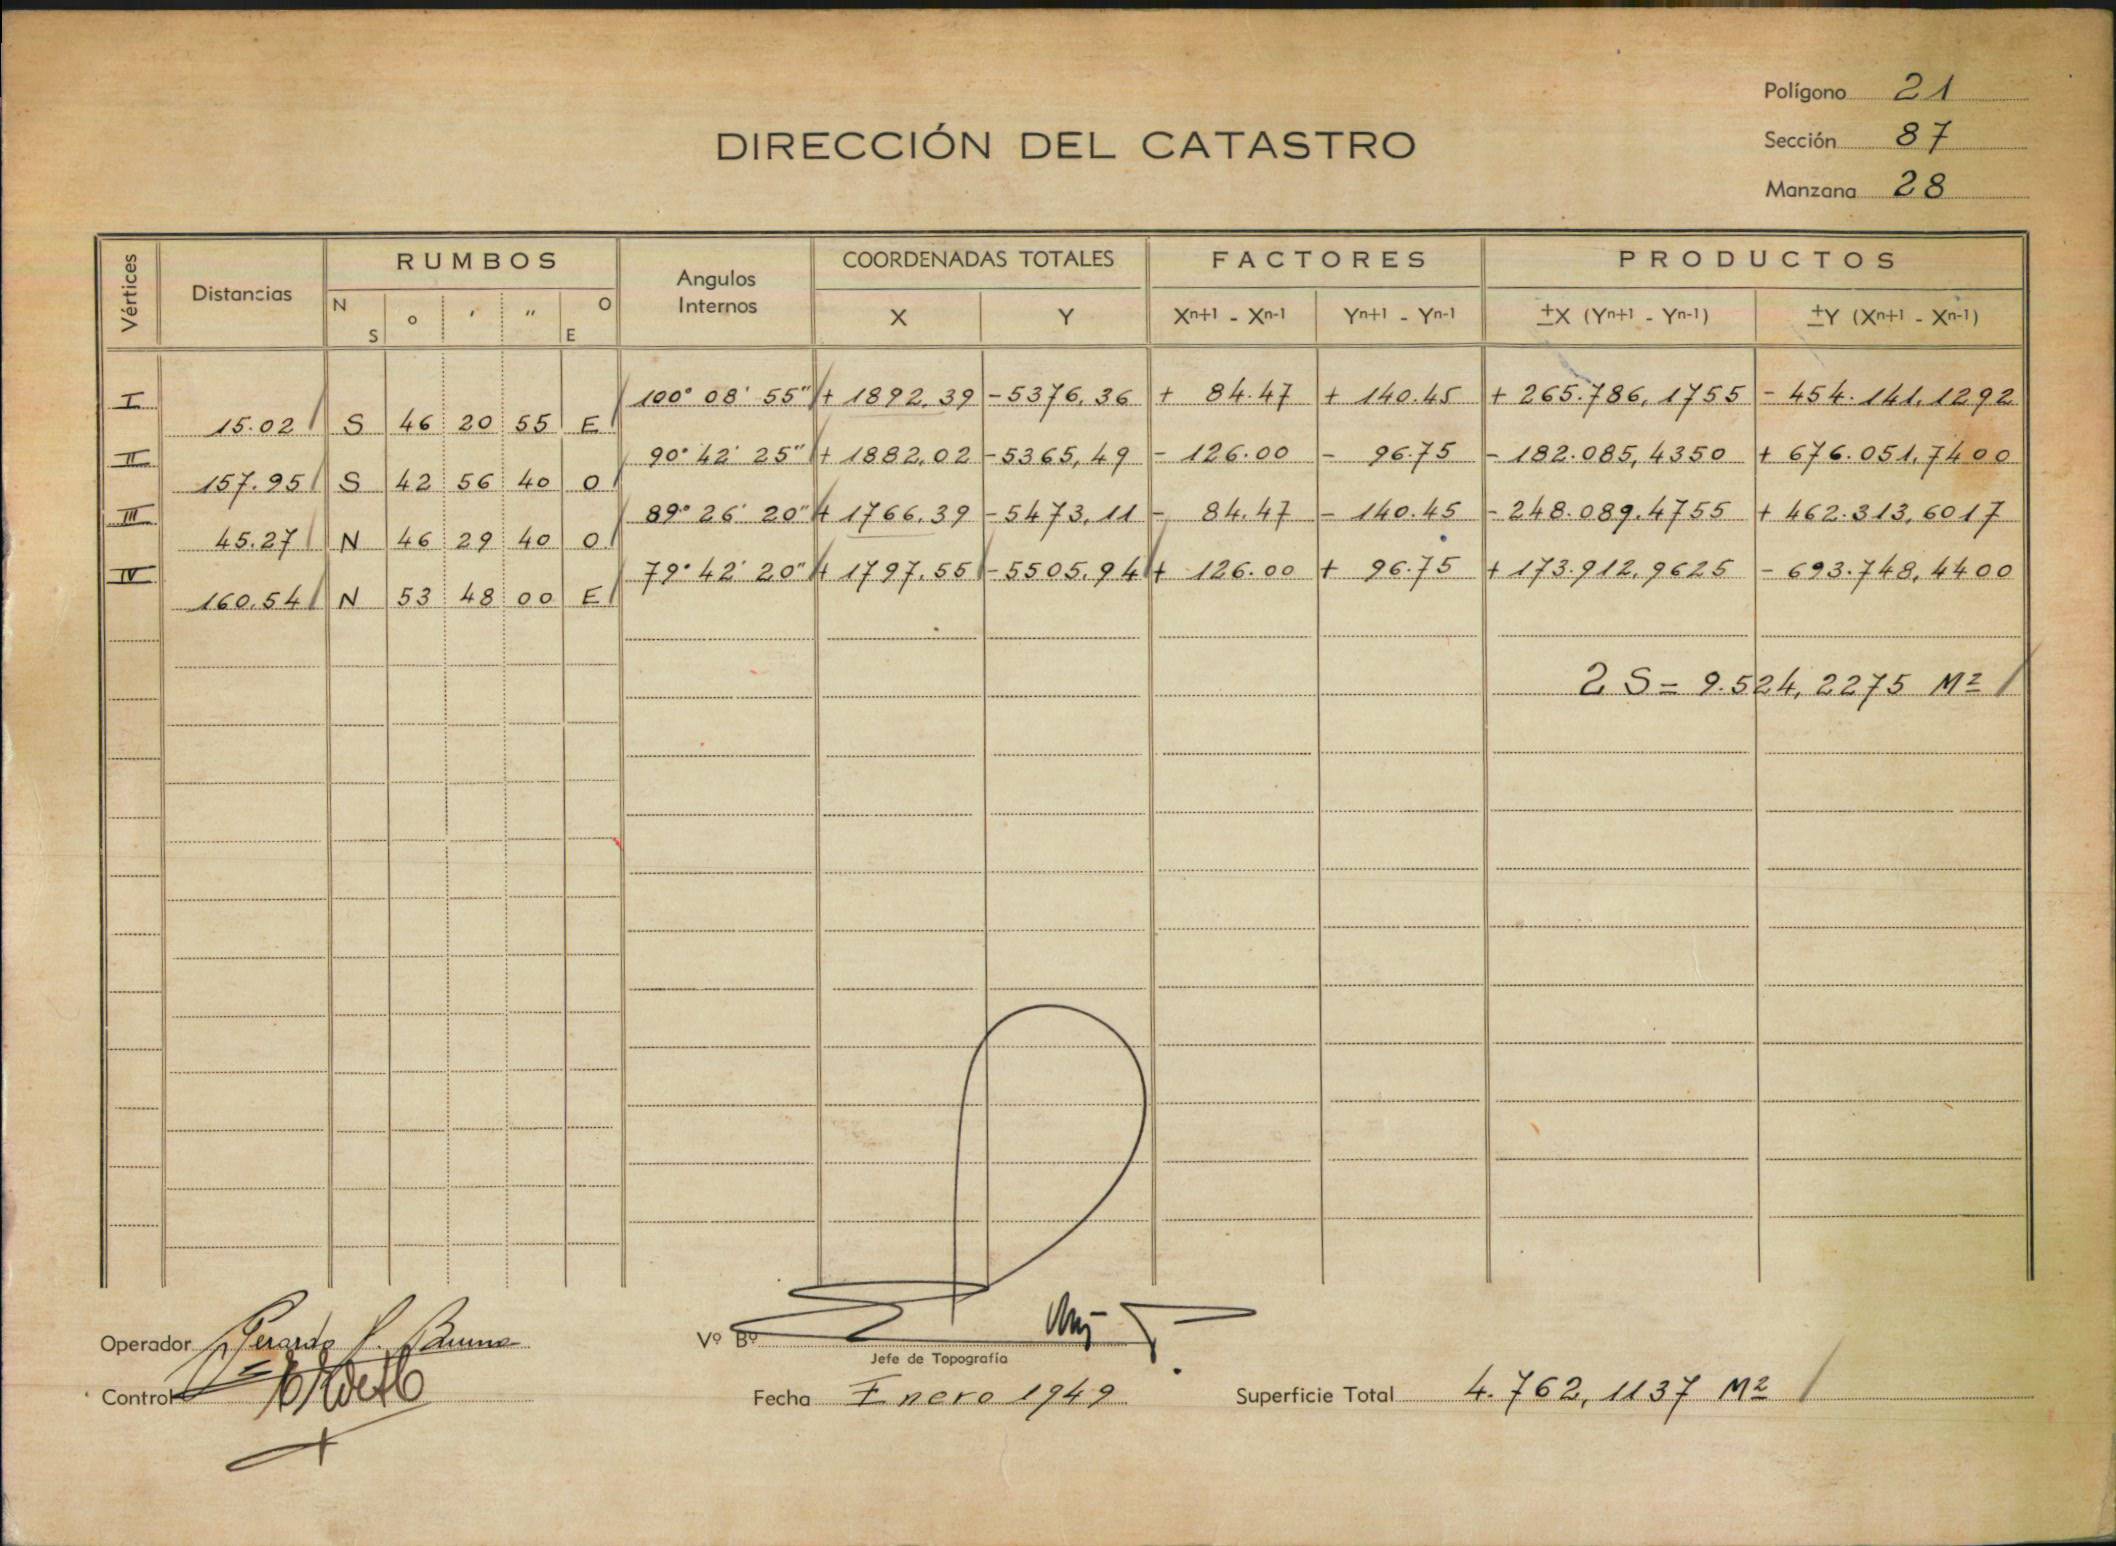 Polígono 21
DIRECCIÓN DEL CATASTRO
Sección 87
Manzana 28
Vértices Distancias RUMBOS Angulos Internos COORDENADAS TOTALES FACTORES PRODUCTOS
N S o ' " O E X Y Xn+1 - Xn-1 Yn+1 - Yn-1 ±X (Yn+1 - Yn-1) ±Y (Xn+1 - Xn-1)
I 100° 08' 55" + 1892,39 -5376,36 + 84.47 + 140.45 + 265.786,1755 - 454.141,1292
15.02 S 46 20 55 E
II 90° 42' 25" + 1882,02 -5365,49 - 126.00 - 96.75 - 182.085,4350 + 676.051,7400
157.95 S 42 56 40 O
III 89° 26' 20" + 1766,39 -5473,11 - 84.47 - 140.45 - 248.089,4755 + 462.313,6017
45.27 N 46 29 40 O
IV 79° 42' 20" + 1797.55 -5505.94 + 126.00 + 96.75 + 173.912,9625 - 693.748,4400
160.54 N 53 48 00 E
2 S = 9.524,2275 M2
Operador Gerardo P.
Vº Bº
Jefe de Topografía
Control
Fecha Enero 1949 Superficie Total 4.762,1137 M2